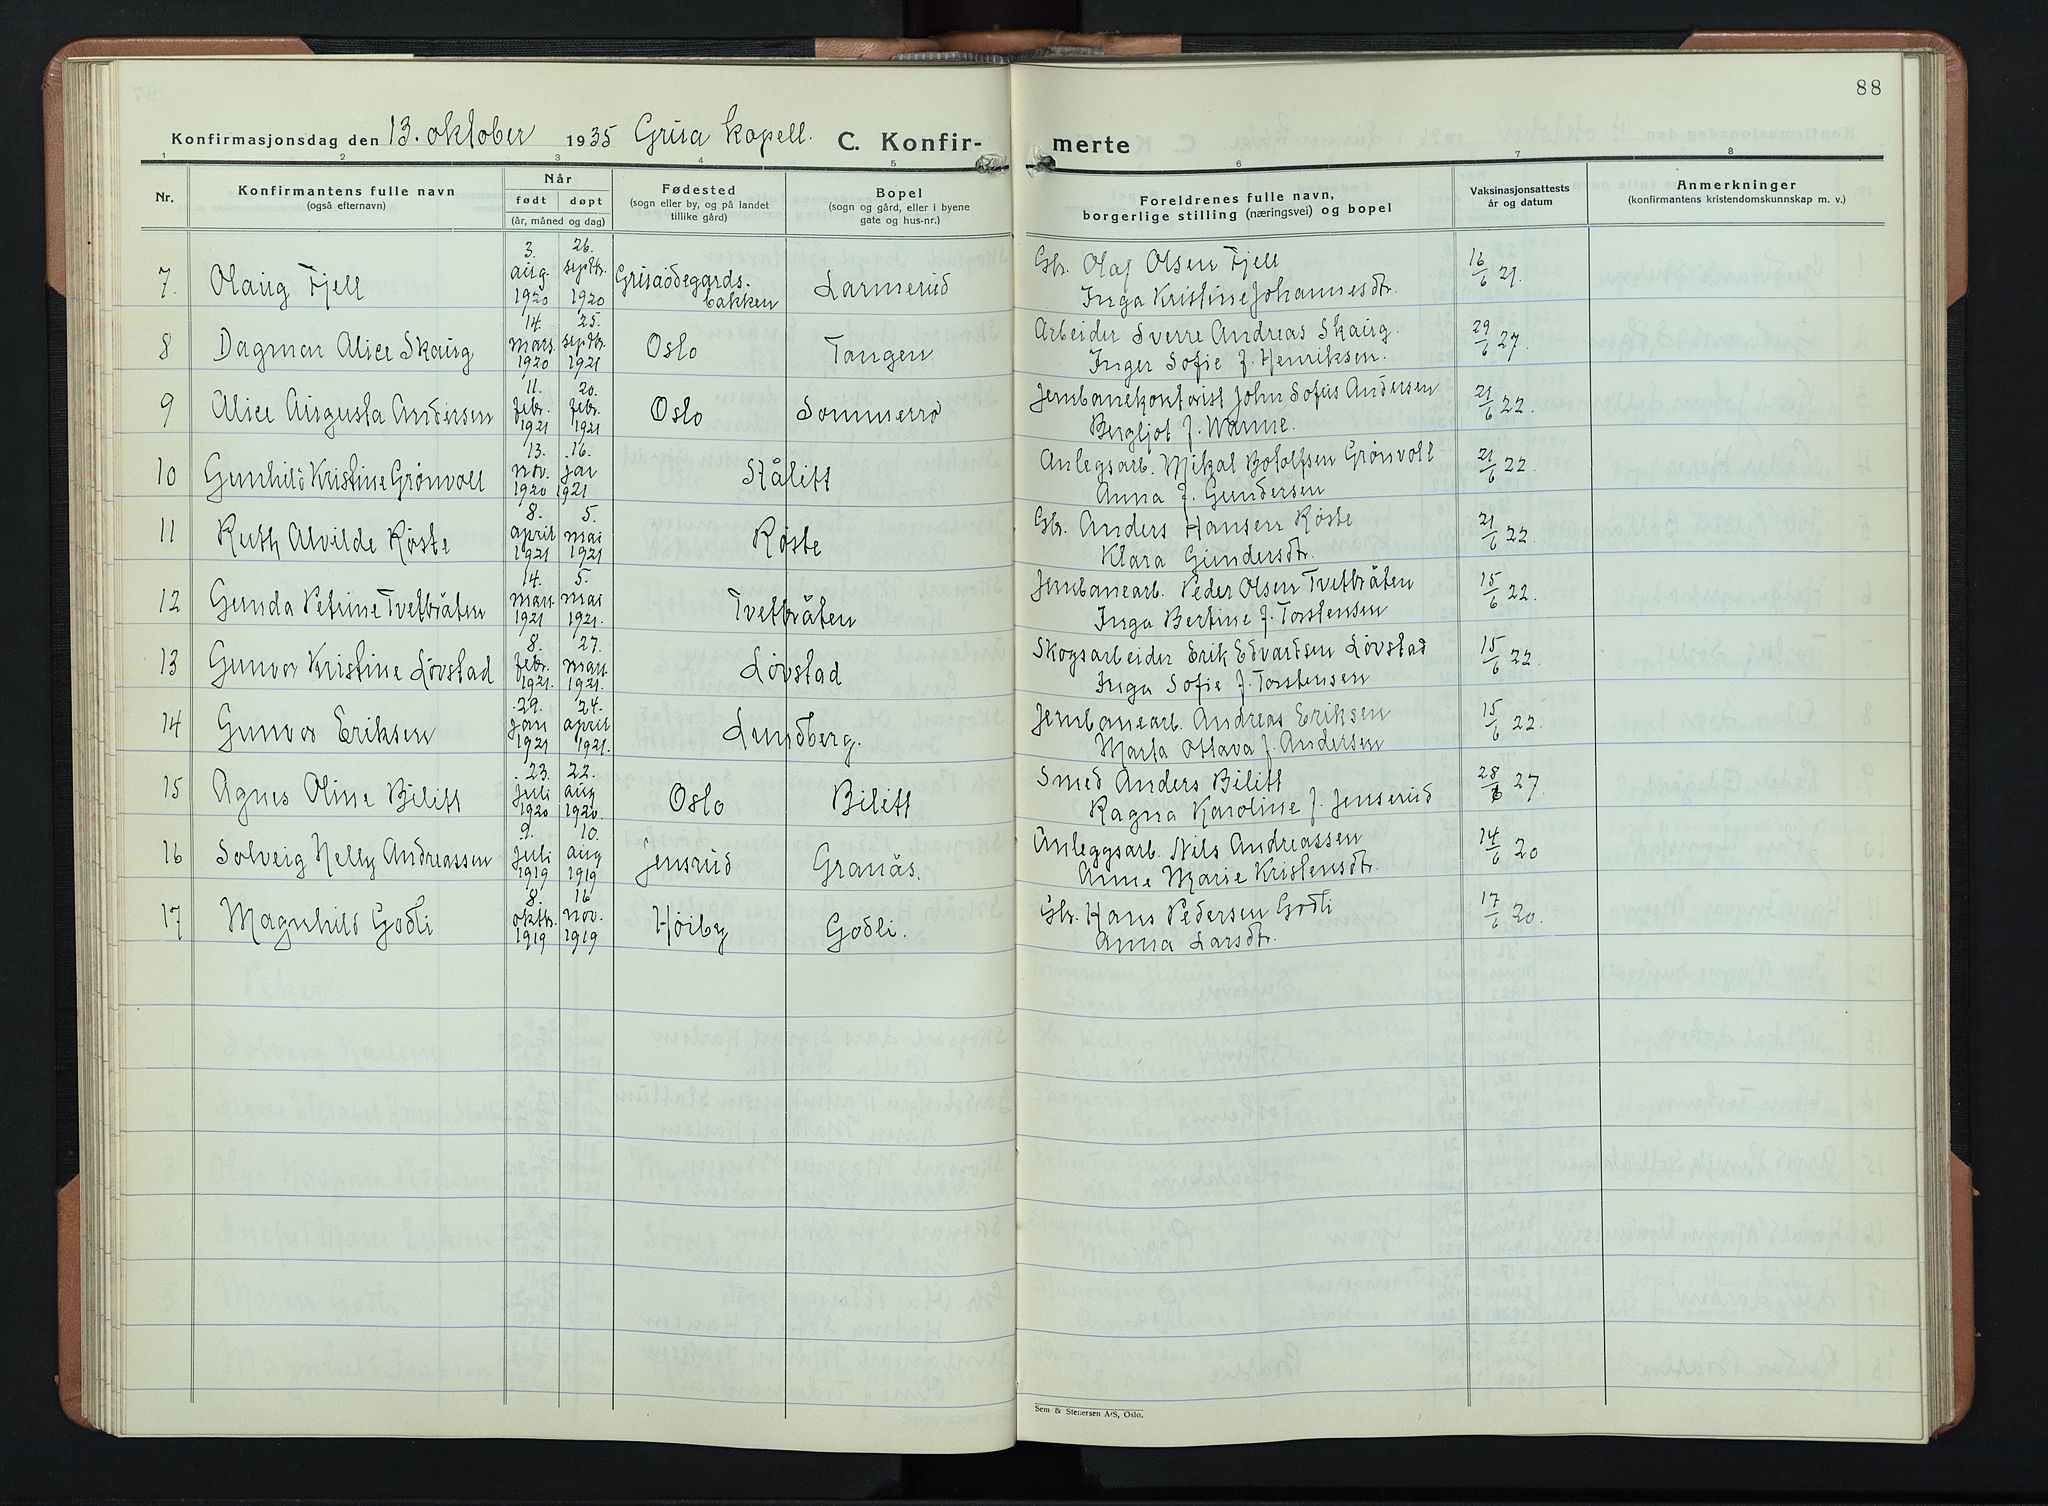 88
Konfirmasjonsdag den 13. oktober 1935 Grua kapell. C. Konfir- merte
1 2 3 4 5 6 7 8
Nr. Konfirmantens fulle navn (også efternavn) Når født døpt (år, måned og dag) Fødested (sogn eller by, og på landet tillike gård) Bopel (sogn og gård, eller i byene gate og hus-nr.) Foreldrenes fulle navn, borgerlige stilling (næringsvei) og bopel Vaksinasjonsattests år og datum Anmerkninger (konfirmantens kristendomskunnskap m. v.)
7. Olaug Fjell 3. aug. 1920 26. septbr. 1920 Gruaødegards-bakken Larmerud Gbr. Olaf Olsen Fjell
Inga Kristine Johannesdtr. 16/6 21.
8 Dagmar Alice Skaug 14. mars 1920 25. septbr. 1921 Oslo Tangen Arbeider Sverre Andreas Skaug.
Inger Sofie f. Henriksen. 29/6 27.
9 Alice Augusta Andersen 11. febr. 1921 20. febr. 1921 Oslo Sommerro Jernbanekontorist John Sofus Andersen
Bergljot f. Wanne. 21/6 22.
10 Gunhild Kristine Grønvoll 13. nov. 1920 16. jan 1921 Stålitt Anlegsarb. Mikal Botolfsen Grønvoll
Anna f. Gundersen 21/6 22.
11 Ruth Alvilde Røste 8. april 1921 5. mai 1921 Røste Gbr. Anders Hansen Røste
Klara Gundersdtr. 21/6 22.
12 Gunda Petrine Tvetbråten 14. mars 1921 5. mai 1921. Tvetbråten Jernbanearb. Peder Olsen Tvetbråten
Inga Bertine f. Torstensen 15/6 22.
13 Gunvor Kristine Løvstad 8. febr. 1921. 27. mars 1921. Løvstad Skogsarbeider Erik Edvardsen Løvstad
Inga Sofie f. Torstensen 15/6 22.
14 Gunvor Eriksen 29. jan 1921 24. april 1921. Lundberg. Jernbanearb. Andreas Eriksen
Marta Ottava f. Andersen 15/6 22.
15 Agnes Oline Bilitt 23. juli 1920 22. aug 1920. Oslo Bilitt Smed Anders Bilitt
Ragna Karoline f. Jenserud 28/6 27.
16 Solveig Nelly Andreassen 9. juli 1919 10. aug 1919 Jensrud Granås. Anleggsarb. Nils Andreassen
Anne Marie Kristensdtr. 14/6 20
17 Magnhild Godli 8. oktbr. 1919 16 nov. 1919 Høiby Godli. Gbr. Hans Pedersen Godli
Anna Larsdtr. 17/6 20.
Sem & Stenersen A/S, Oslo.